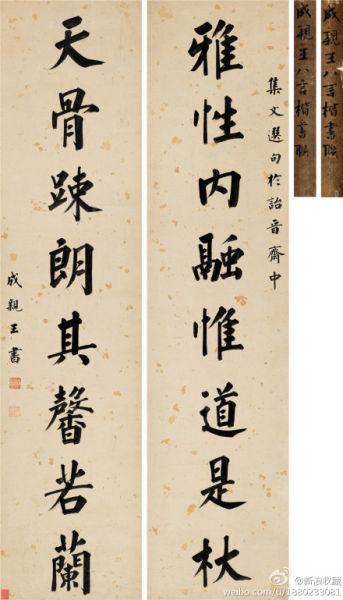 集文選句於詒晋齋中
雅性内融惟道是杖
天骨踈朗其馨若蘭
成親王書
成親王八言楷書聯
成親王八言楷書聯
新浪收藏
weibo.com/u/1880233081